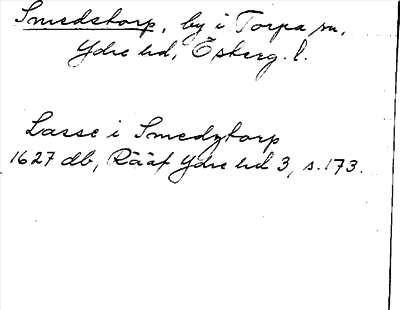 Smedstorp, by i Torpa sn,
Ydre hd, Österg. l.
Lasse i Smedztorp
1627 db, Rääf Ydre hd 3, s. 173.